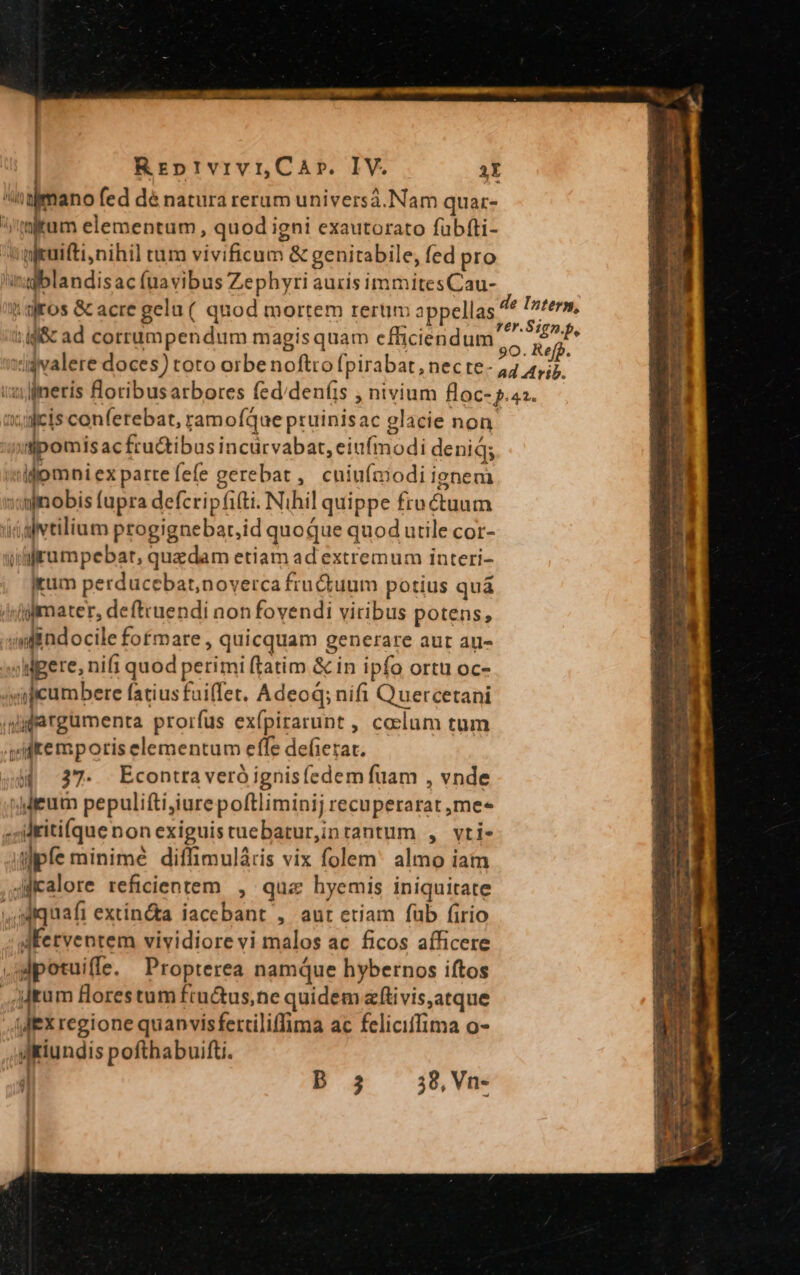 REDIVIVI, CAP. IV. 21
mano ſed dè natura rerum universâ. Nam quar-
tum elementum, quod igni exautorato ſubſti-
tuiſti, nihil tum vivificum & genitabile, ſed pro
blandis ac ſuavibus Zephyri auris immites Cau-
ros & acre gelu ( quod mortem rerum appellas
& ad corrumpendum magis quam efficiendum
valere doces) toto orbe noſtro ſpirabat, nec te-
neris floribus arbores ſed denſis , nivium floc-
cis conferebat, ramoſq́ue pruinis ac glacie non
pomis ac fructibus incurvabat, eiuſmodi deniq;
omni ex parte ſeſe gerebat , cuiuſmodi ignem
nobis ſupra deſcripſiſti. Nihil quippe fructuum
vtilium progignebat, id quoq́ue quod utile cor-
rumpebat, quædam etiam ad extremum interi-
tum perducebat, noverca fructuum potius quá
mater, deſtruendi non fovendi viribus potens,
indocile formare , quicquam generare aut au-
gere, niſi quod perimi ſtatim & in ipſo ortu oc-
cumbere ſatius fuiſſet. Adeoq; niſi Quercetani
argumenta prorſus exſpirarunt , cœlum tum
temporis elementum eſſe deſierat.
37. Econtra verò ignis ſedem ſuam , vnde
eum pepuliſti, iure poſtliminij recuperarat , me-
ritiſque non exiguis tuebatur, in tantum , vti-
pſe minimè diſſimuláris vix ſolem almo iam
calore reficientem , quæ hyemis iniquitate
quaſi extincta iacebant , aut etiam ſub ſirio
ferventem vividiore vi malos ac ficos afficere
potuiſſe. Propterea namq́ue hybernos iſtos
tum flores tum fructus, ne quidem æſtivis, atque
ex regione quanvis fertiliſſima ac feliciſſima o-
riundis poſthabuiſti.
B 3 38, Vn-
de Intern,
rer. Sign. p.
90. Reſp.
ad Arib.
p. 42.